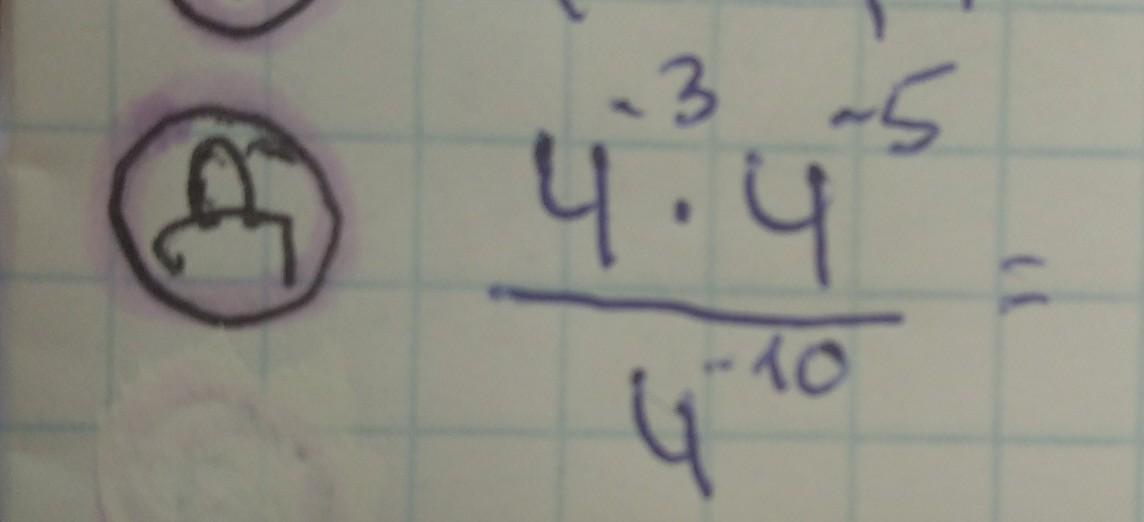 Д
4⁻³ · 4⁻⁵
4⁻¹⁰
=